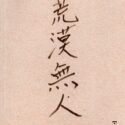 荒漠無人